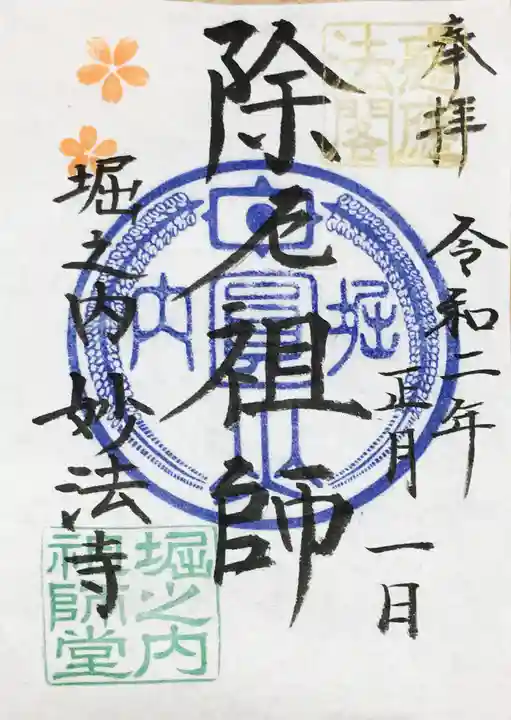 奉拝
令和二年
正月一日
除厄祖師
堀之内 妙法寺
堀
内
堀之内
祖師堂